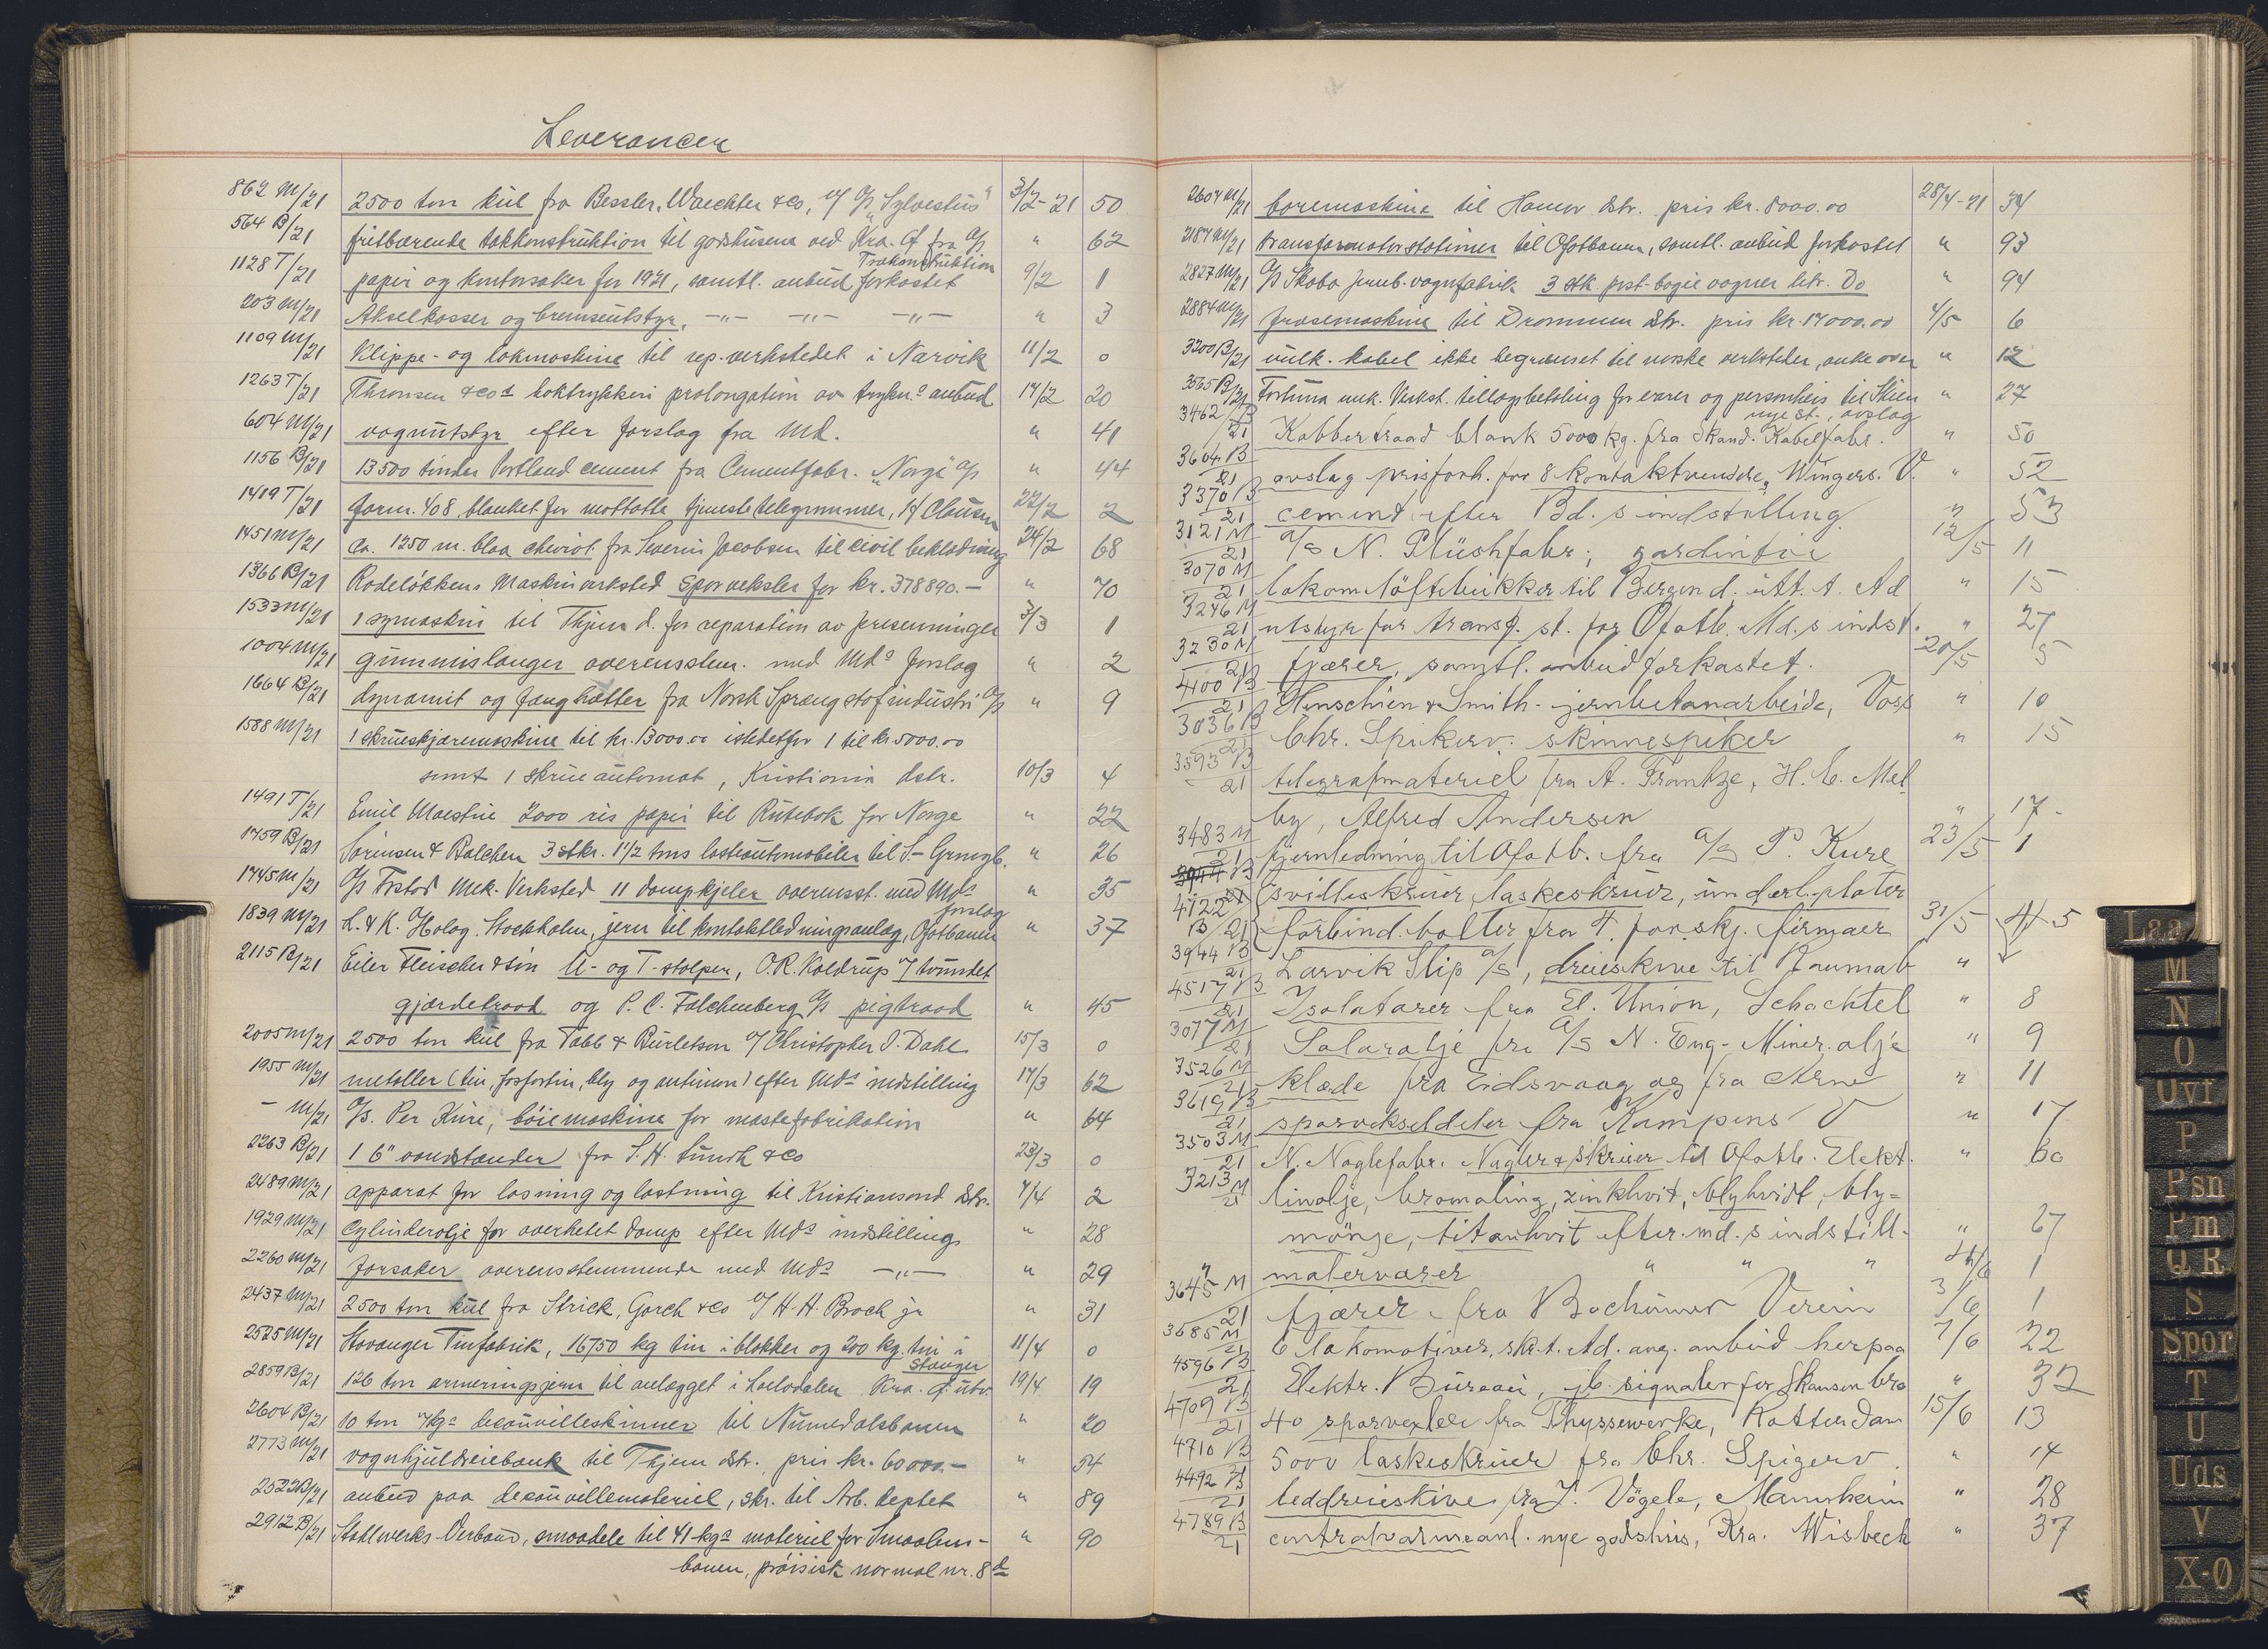 Leverancer
862 M/21 2500 ton kul fra Bessler, Waechter & Co, A/S "Sylvestris" 3/2-21 50
564 B/21 fritbærende takkonstruktion til godshusene ved Kra. Ø fra A/S " 62
Trækonstruktion
1128 T/21 papir og kontorsaker for 1921, samtl. anbud forkastet 9/2 1
203 M/21 Akselkasser og bremseutstyr, —"— —"— —"— " 3
1109 M/21 Klippe- og lokmaskine til rep.verkstedet i Narvik 11/2 0
1263 T/21 Thronsen & Cos boktrykkeri prolongation av trykn.s anbud 14/2 20
604 M/21 vognutstyr efter forslag fra Md. " 41
1156 B/21 13500 tønder Portland cement fra Cementfabr. "Norge" A/S " 44
1419 T/21 form. 408 blanket for mottatte tjenestetelegrammer, H. Clausen 22/2 2
1451 M/21 Ca. 1250 m. blaa cheviot fra Severin Jacobsen til civil beklædning 24/2 68
1366 B/21 Rodeløkkens Maskinverksted sporveksler for kr. 378890.— " 70
1533 M/21 1 symaskin til Thjem d. for reparation av presenninger 3/3 1
1004 M/21 gummislanger overensstem. med Mds forslag " 2
1664 B/21 dynamit og fænghætter fra Norsk Sprængstofindustri A/S " 9
1588 M/21 1 skrueskjæremaskine til kr. 13000.00 istedetfor 1 til kr. 5000.00
samt 1 skrueautomat, Kristiania dstr. 10/3 4
1491 T/21 Emil Moestue 2000 ris papir til Rutebok for Norge " 22
1759 B/21 Sørensen & Balchen 3 stkr. 1 1/2 tons lasteautomobiler til S.- Grungb. " 26
1745 M/21 A/S Fr.stad Mek. Verksted 11 dampkjeler overensst. med Mds " 35
forslag
1839 M/21 L. & K. Holog. Stockholm, jern til kontaktledningsanlæg, Ofotbanen " 37
2115 B/21 Eiler Fleischer & Søn U- og T-stolper, O.R. Koldrup A/S tvundet
gjærdetraad og P. C. Falchenberg A/S pigtraad " 45
2005 M/21 2500 ton kul fra Tabb & Burletson A/S Christopher D. Dahl 15/3 0
1955 M/21 metaller (tin, fosfortin, bly og antimon) efter Mds indstilling 17/3 62
— M/21 A/S. Per Kure, bøiemaskine for mastefabrikation " 64
2263 B/21 1 6" vandstander fra S. H. Lundh & Co 23/3 0
2489 M/21 apparat for losning og lastning til Kristiansand dstr. 7/4 2
1929 M/21 Cylinderolje for overhetet damp efter Mds indstilling " 28
2260 M/21 farsaker overensstemmende med Mds —"— " 29
2437 M/21 2500 ton kul fra Strick, Gorch & Co A/S H. H. Broch jr " 31
2525 M/21 Stavanger Tinfabrik, 16750 kg tin i blokker og 200 kg. tin i 11/4 0
stænger
2859 B/21 126 ton armeringsjern til anlægget i Loelvdalen Kra. Ø. utv. 19/4 19
2604 B/21 10 ton 7 kgs decauvilleskinner til Numedalsbanen " 20
2773 M/21 vognhjuldreiebænk til Thjem dstr., pris kr. 60 000.— " 54
2522 B/21 anbud paa decauvillemateriel, skr. til Arb. deptet " 89
2912 B/21 Stahlwerks-Verband, smaadele til 41-kgs materiel for Smaalens- " 90
banen, prøisisk normal nr. 8 d
2604 M/21 boremaskine til Hamar dstr. pris kr. 8000.00 28/4-21 34
2184 M/21 transformatorstationer til Ofotbanen, samtl. anbud forkastet " 93
2827 M/21 A/S Skabo Jernb.vognfabrik 3 stk. post-bogie vogner litr. Do " 94
2884 M/21 fræsemaskine til Drammen dstr. pris kr. 14000.00 4/5 6
3200 B/21 mulk. kabel ikke begrænset til norske verksteder, anke over " 12
3565 B/21 Fortuna mek. Verkst. tillægsbetaling for varer og personheis til Skien " 27
nye st., avslag
3462 B/21 Kobbertraad blank 5000 kg. fra Skand. Kabelfabr. " 50
3604 B/21 avslag prisforh. for 8 kontaktvendere, Wingers. V. " 52
3370 B/21 cement efter Bd.s indstilling " 53
3121 M/21 A/S N. Plüshfabr.; gardintøi 12/5 11
3070 M/21 lokomløftebukker til Bergen d. utt. t. Ad " 15
3246 M/21 utstyr for transf. st. for Ofotb. Md.s indst. " 27
3230 M/21 fjærer, samtl. anbud forkastet. 20/5 5
4100 B/21 Hinschien & Smith - jernbetonarbeide, Voss " 10
3036 B/21 Chr. Spikerv. skinnespiker " 15
3593 B/21 telegrafmateriel fra A. Frantze, H. C. Mel
by, Alfred Andersen " 17-
3483 M/21 fjernledning til Ofotb. fra A/S P. Kure 23/5 1
3944 B/21 svilleskruer, laskeskruer, underl.plater
4722 B/21 forbind.bolter fra 4 forskj. firmaer 31/5 4-5
3944 B/21 Larvik Slip A/S, dreieskive til Raumab "
4517 B/21 Isolatorer fra El. Union, Schachtel " 8
3077 M/21 Solarolje fra A/S N. Eng.- Miner.olje " 9
3526 M/21 klæde fra Eidsvaag og fra Arne " 11
3619 B/21 sporvekseldeler fra Kampens V " 17
3503 M/21 N. Naglefabr. Nagler & skruer til Ofotb. Elekt. " 60
3213 M/21 linolje, kromaling, zinkhvit, blyhvidt, bly=
mønje, titanhvit efter md.s indstill. " 67
" malervarer " " " 1/6 1
3645 M/21 fjærer fra Bochumer Verein 3/6 1
3685 M/21 6 lokomotiver, skr. t. Ad. ang. anbud herpaa 7/6 22
4596 B/21 Elektr. Bureau, jb.signaler for Skansen bro " 32
4709 B/21 40 sporvexler fra Thyssewerke, Rotterdam 15/6 13
4710 B 5000 laskeskruer fra Chr. Spigerv. " 14
4492 B/21 leddreieskive fra J. Vögele, Mannheim " 28
4789 B/21 centralvarmeanl. nye godshus, Kra. Wisbech " 37
Laa
M
N
O
Ovf
P
Psn
Pm
QR
S
Spor
T
U
Uds
V
X-Ø